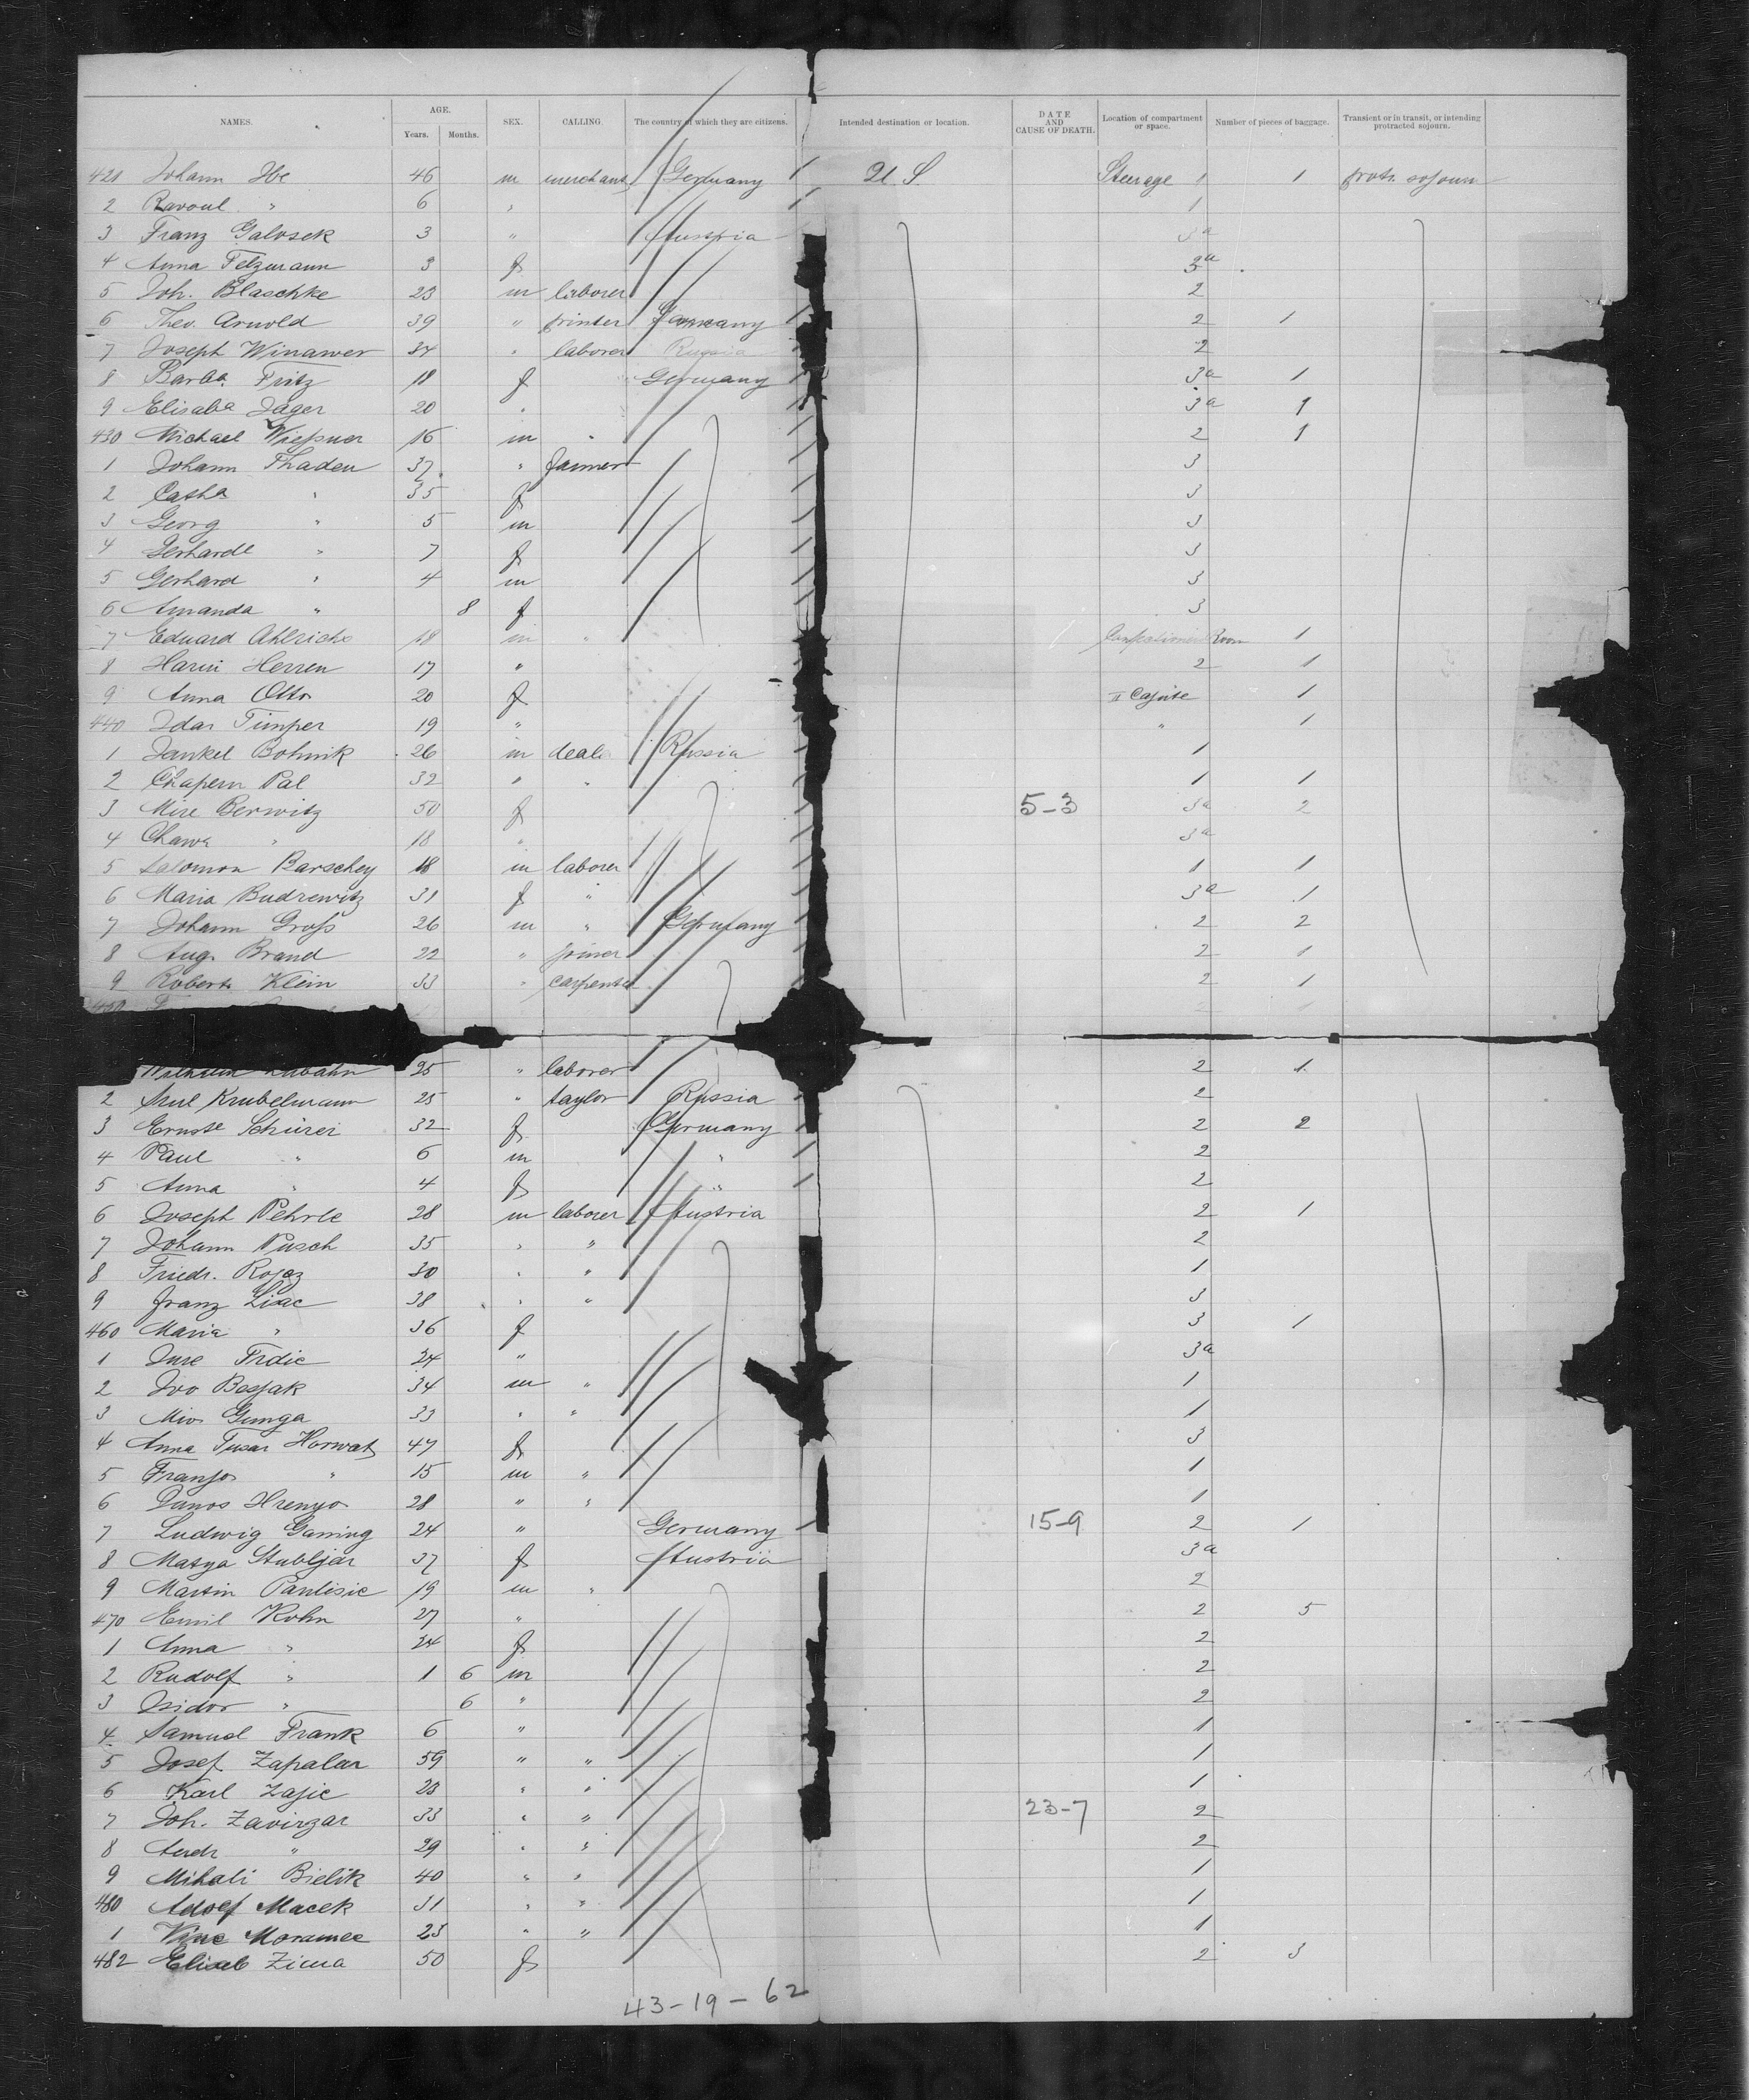 NAMES. AGE. Years. Months. SEX. CALLING. The country of which they are citizens. Intended destination or location. DATE AND CAUSE OF DEATH. Location of compartment or space. Number of pieces of baggage. Transient or in transit, or intending protracted sojourn.
421 Johann Ibe 46 m merchant Germany U. S. Steerage 1 1 protr. sojourn
2 Ravoul " 6 " 1
3 Franz Galosek 3 " Austria 3a
4 Anna Felzmann 3 f 3a
5 Joh. Blaschke 23 m laborer 2
6 Theo. Arnold 39 " printer Germany 2 1
7 Joseph Winawer 34 " laborer Russia 2
8 Barba Fritz 18 f Germany 3a 1
9 Elisaba Jäger 20 " 3a 1
430 Michael Wießner 16 m " 2 1
1 Johann Thaden 37 " farmer 3
2 Cath. " 35 f 3
3 Georg " 5 m 3
4 Gerharde " 7 f 3
5 Gerhard " 4 m 3
6 Amanda " 8 f 3
7 Eduard Ahlrichs 18 m " Room 1
8 Harm Herren 17 " 2 1
9 Anna Otto 20 f II Cajüte 1
440 Ida Timper 19 " " 1
1 Jankel Bohnik 26 m deale Russia 1
2 Chapem Pal 32 " " 1 1
3 Mire Berwitz 50 f 5-3 3a 2
4 Chawe " 18 " 3a
5 Salomon Barschey 18 m laborer 1 1
6 Maria Budrewitz 31 f " 3a 1
7 Johann Groß 26 m " Germany 2 2
8 Aug. Brand 22 " joiner 2 1
9 Robert Klein 33 " carpenter 2 1
25 " laborer 2 1
2 Krubelmann 25 " taylor Russia 2
3 Ernste Schürer 32 f Germany 2 2
4 Paul " 6 m " 2
5 Anna " 4 f " 2
6 Joseph Pehrle 28 m laborer Austria 2 1
7 Johann Pusch 35 " " 2
8 Friedr. Rojez 30 " " 1
9 Franz Lisac 38 " " 3
460 Maria " 36 f 3 1
1 Jure Frdic 24 " 3a
2 Ivo Bosjak 34 m " 1
3 Mio Gunga 33 " " 1
4 Anna Tusar Horwat 47 f 3
5 Franjo " 15 m " 1
6 Janos Hrenyo 28 " " 1
7 Ludwig Ganing 24 " Germany 15-9 2 1
8 Matya Stubljar 37 f Austria 3a
9 Martin Pavlisic 19 m " 2
470 Emil Kohn 27 " 2 5
1 Anna " 24 f 2
2 Rudolf " 1 6 m 2
3 Isidor " 6 " 2
4 Samuel Frank 6 " 1
5 Josef Zapalar 59 " " 1
6 Karl Zajic 23 " " 1
7 Joh. Zavirzar 33 " " 23-7 2
8 Andr " 29 " " 2
9 Mihali Bielik 40 " " 1
480 Adolf Macek 31 " " 1
1 Vinc Moramec 23 " " 1
482 Elisab Zima 50 f 2 3
43-19-62